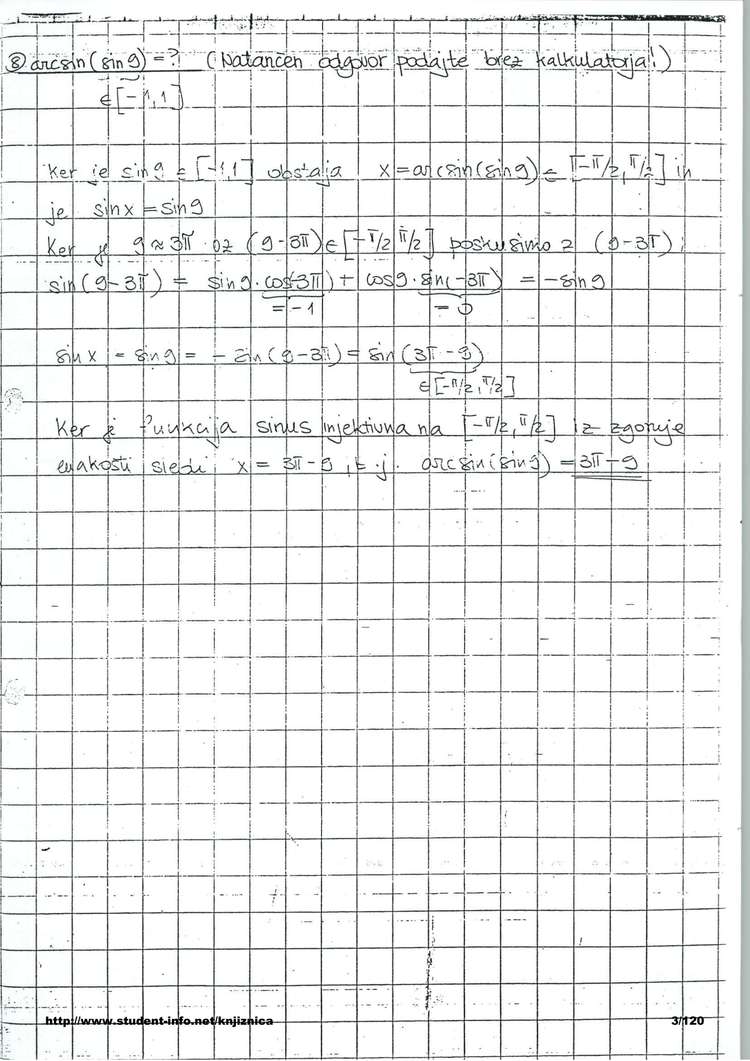 ⑧ arcsin(sin 9) = ? (Natančen odgovor podajte brez kalkulatorja!)
∈ [-1,1]
Ker je sin 9 ∈ [-1,1] obstaja x = arcsin(sin 9) ∈ [-π/2, π/2] in
je sin x = sin 9
Ker je 9 ≈ 3π oz (9-3π) ∈ [-π/2 π/2] poskusimo z (9-3π):
sin(9-3π) = sin 9 · cos(-3π) + cos 9 · sin(-3π) = -sin 9
= -1 = 0
sin x = sin 9 = - sin(9-3π) = sin(3π-9)
∈ [-π/2, π/2]
Ker je funkcija sinus injektivna na [-π/2, π/2] iz zgornje
enakosti sledi x = 3π-9, t.j. arcsin(sin 9) = 3π-9
http://www.student-info.net/knjiznica 3/120